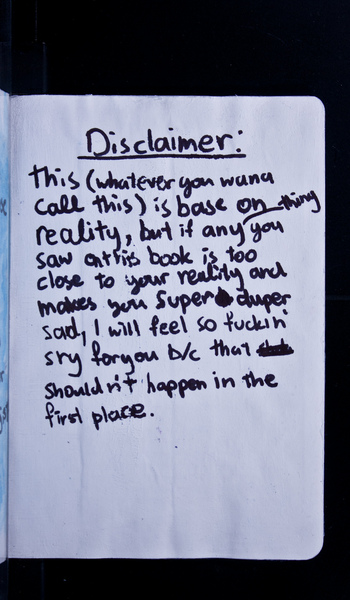 Disclaimer:
This (whatever you wana
call this) is base on
reality, but if anything you
saw on this book is too
close to your reality and
makes you super duper
sad, I will feel so fuckin'
sry for you b/c that
shouldn't happen in the
first place.